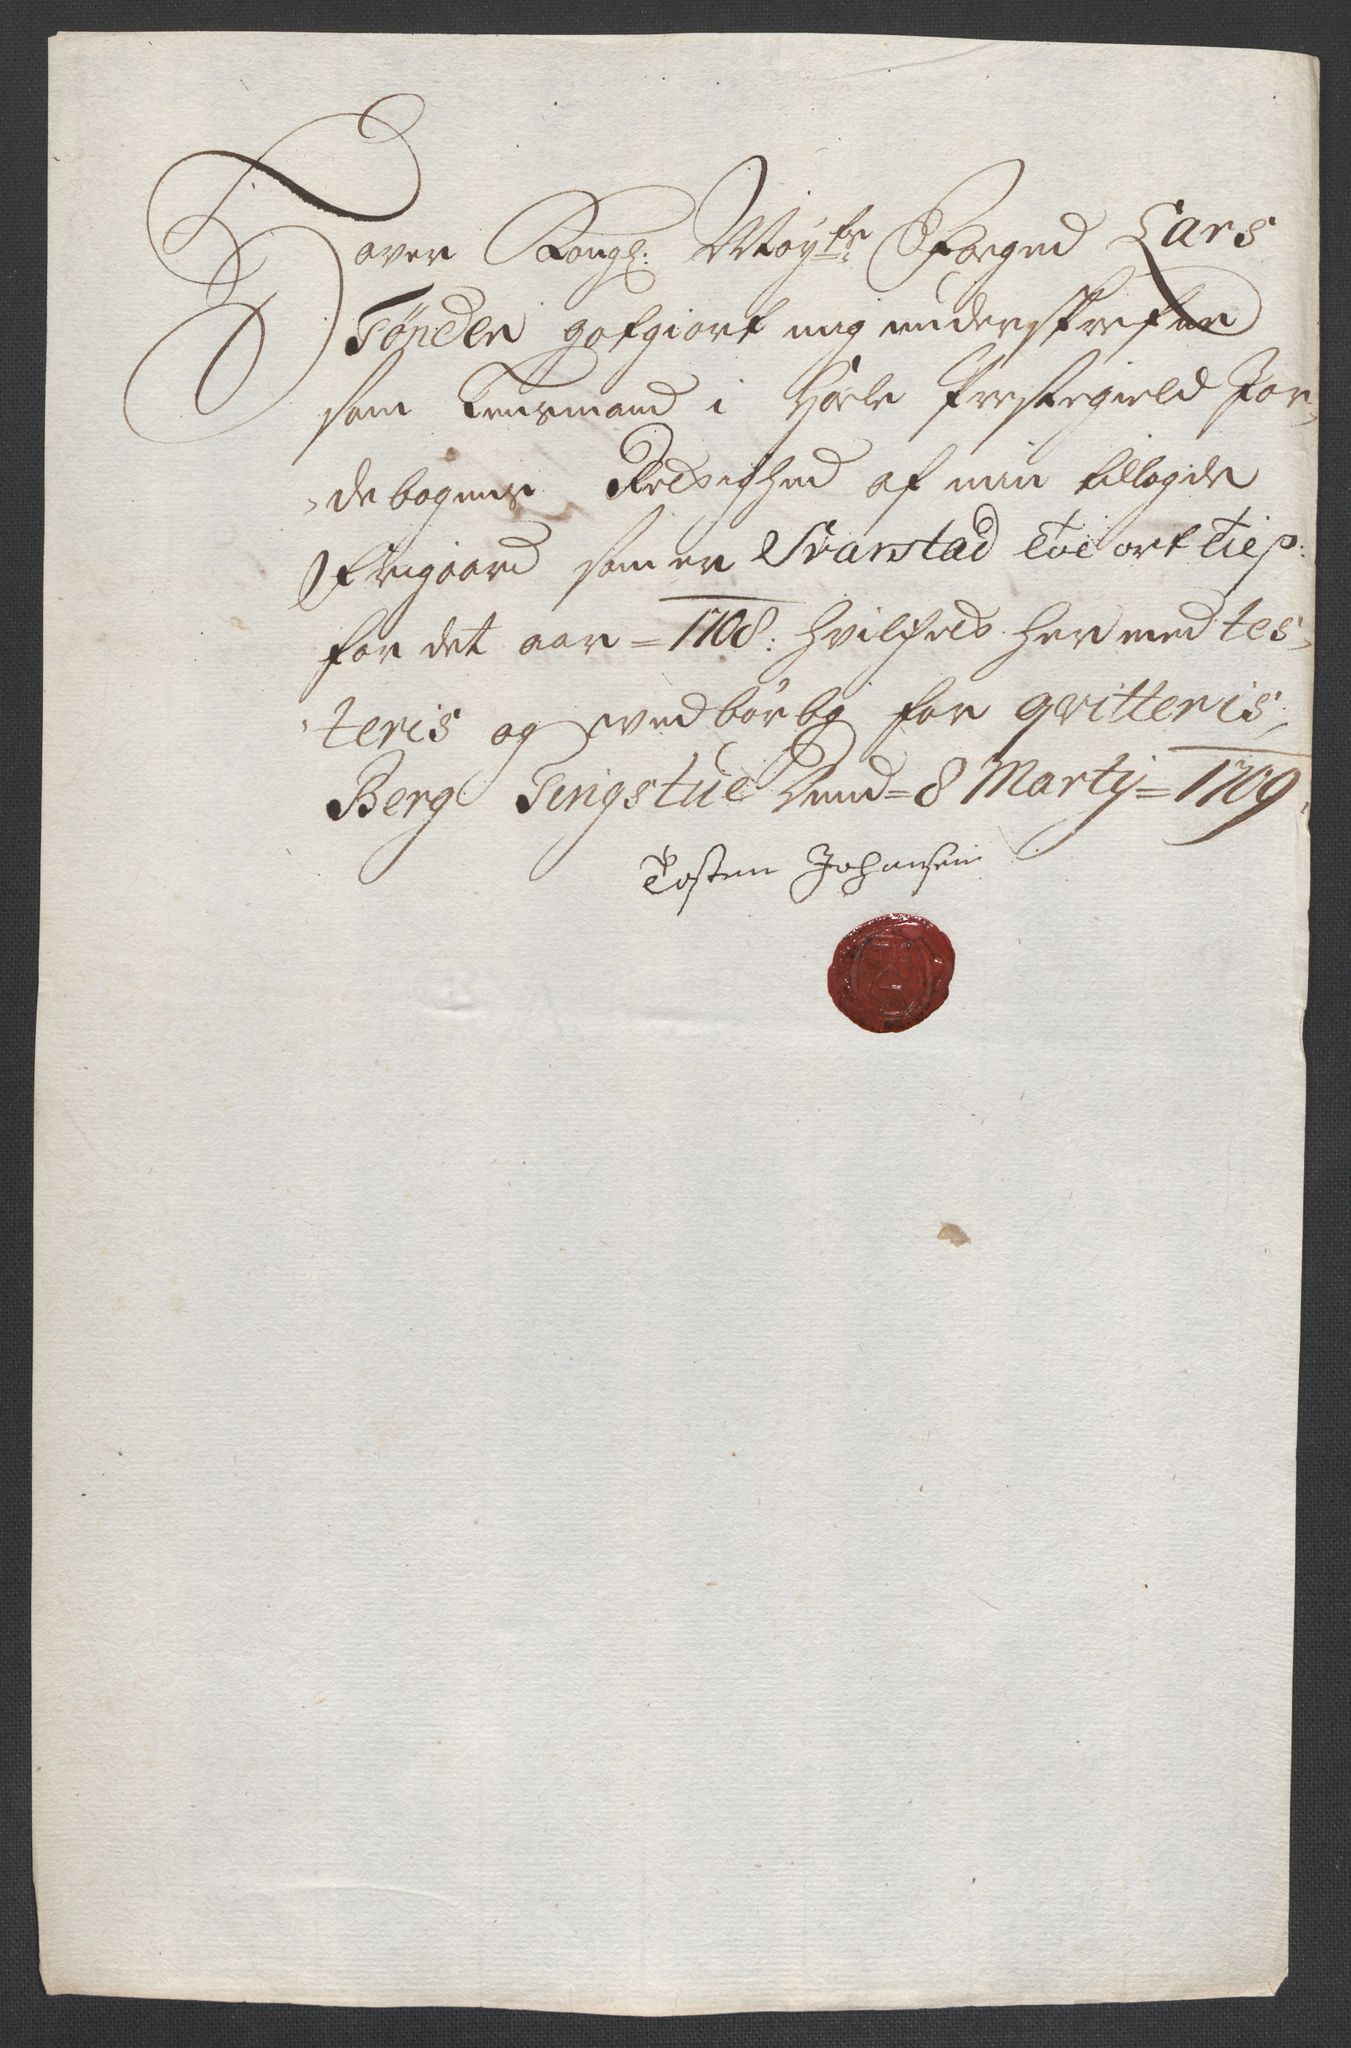 Haver Kongl: Mayts Foeged Lars
Tønder gotgiort mig underskrefne
som Lensmand i Hoele Prestegield Jor-
-debogens Retzighed af min tillagde
Frigaard som er Svanstad Toe ort Tie s:
for det aar = 1708: hvilched hermed tes-
teris og ved børlig for qvitteris,
Berg Tingstue Dend = 8 Martij = 1709.
Tosten Johansen